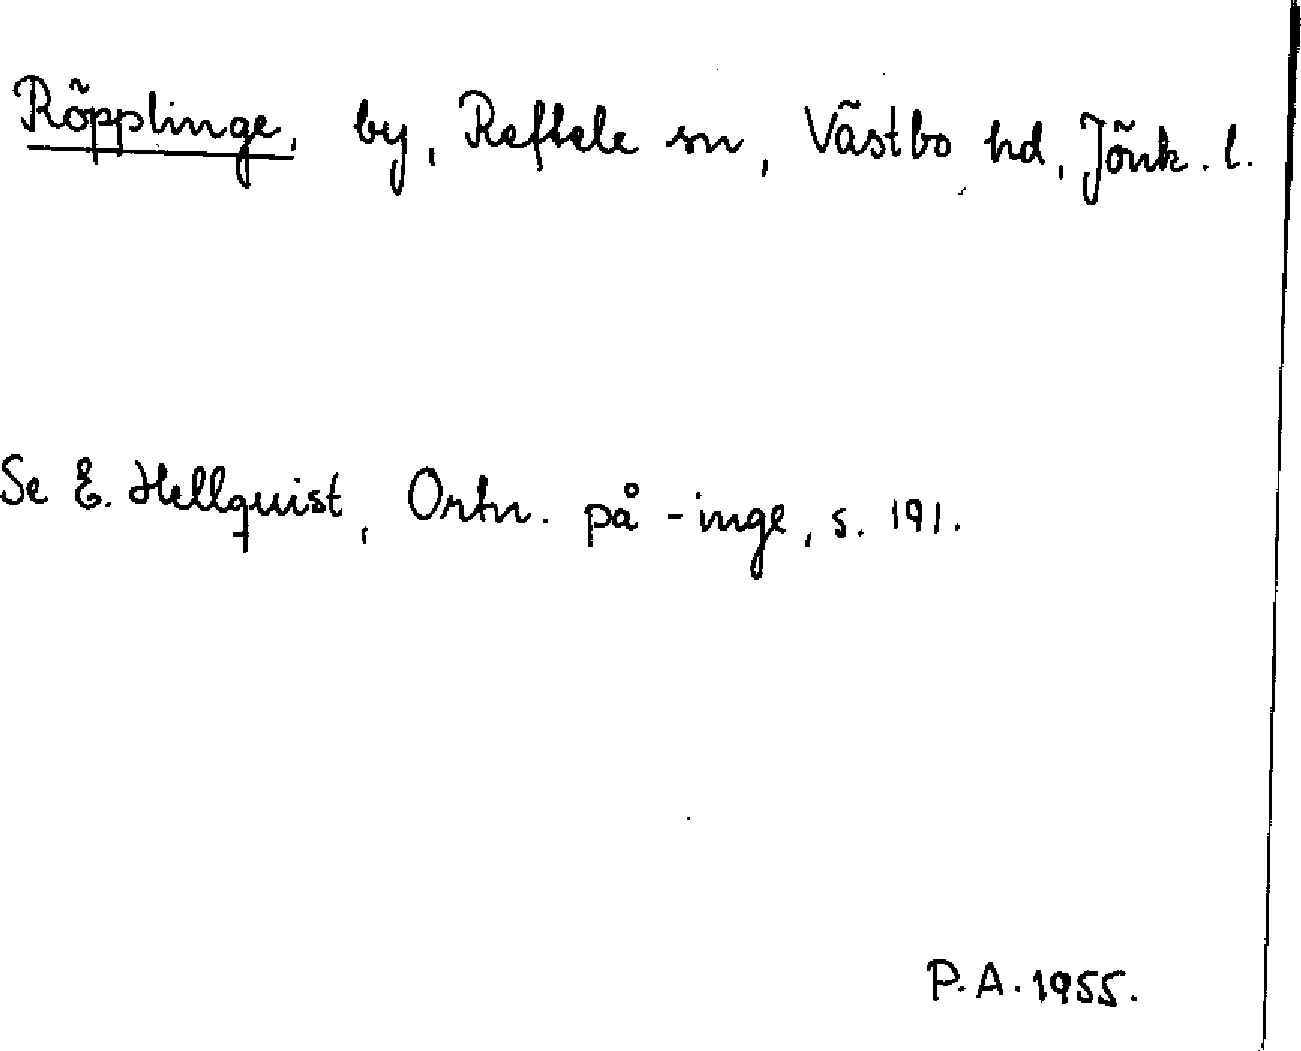 Röpplinge, by, Reftele sn, Västbo hd, Jönk. l.
Se E. Hellquist, Ortn. på -inge, s. 191.
P.A. 1955.